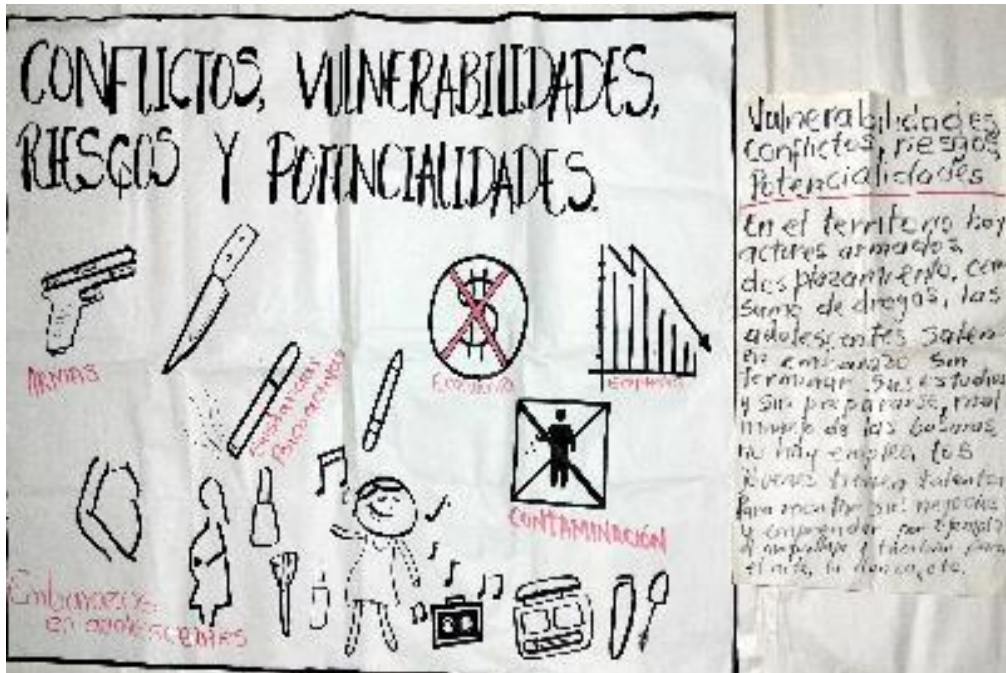 CONFLICTOS, VULNERABILIDADES,
RIESGOS Y POTENCIALIDADES.
ARMAS
Sustancias
Psicoactivas
Economía
Empleos
CONTAMINACIÓN
Embarazos
en adolescentes
Vulnerabilidades,
conflictos, riesgos,
Potencialidades
En el territorio hay
actores armados,
desplazamiento, con
sumo de drogas, las
adolescentes salen
en embarazo sin
terminar sus estudios
y sin prepararse, mal
manejo de las basuras,
no hay empleo, los
jóvenes tienen talentos
para montar sus negocios
y emprender por ejemplo
el maquillaje y también para
el arte, la danza, etc.